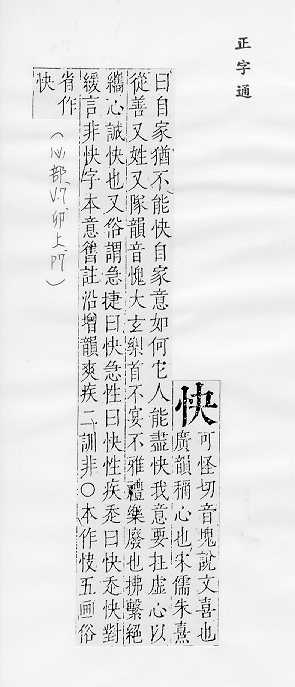 正字通
快
可怪切音塊說文喜也
廣韻稱心也宋儒朱熹
曰自家猶不能快自家意如何它人能盡快我意要在虛心以
從善又姓又隊韻音愧大玄樂首不宴不雅禮樂廢也拂繫絕
纗心誠快也又俗謂急捷曰快急性曰快性疾曰快快對
緩言非快字本意舊註沿增韻爽疾二訓非○本作五画俗
省作
快
(心部 V.7 卯上 P7)